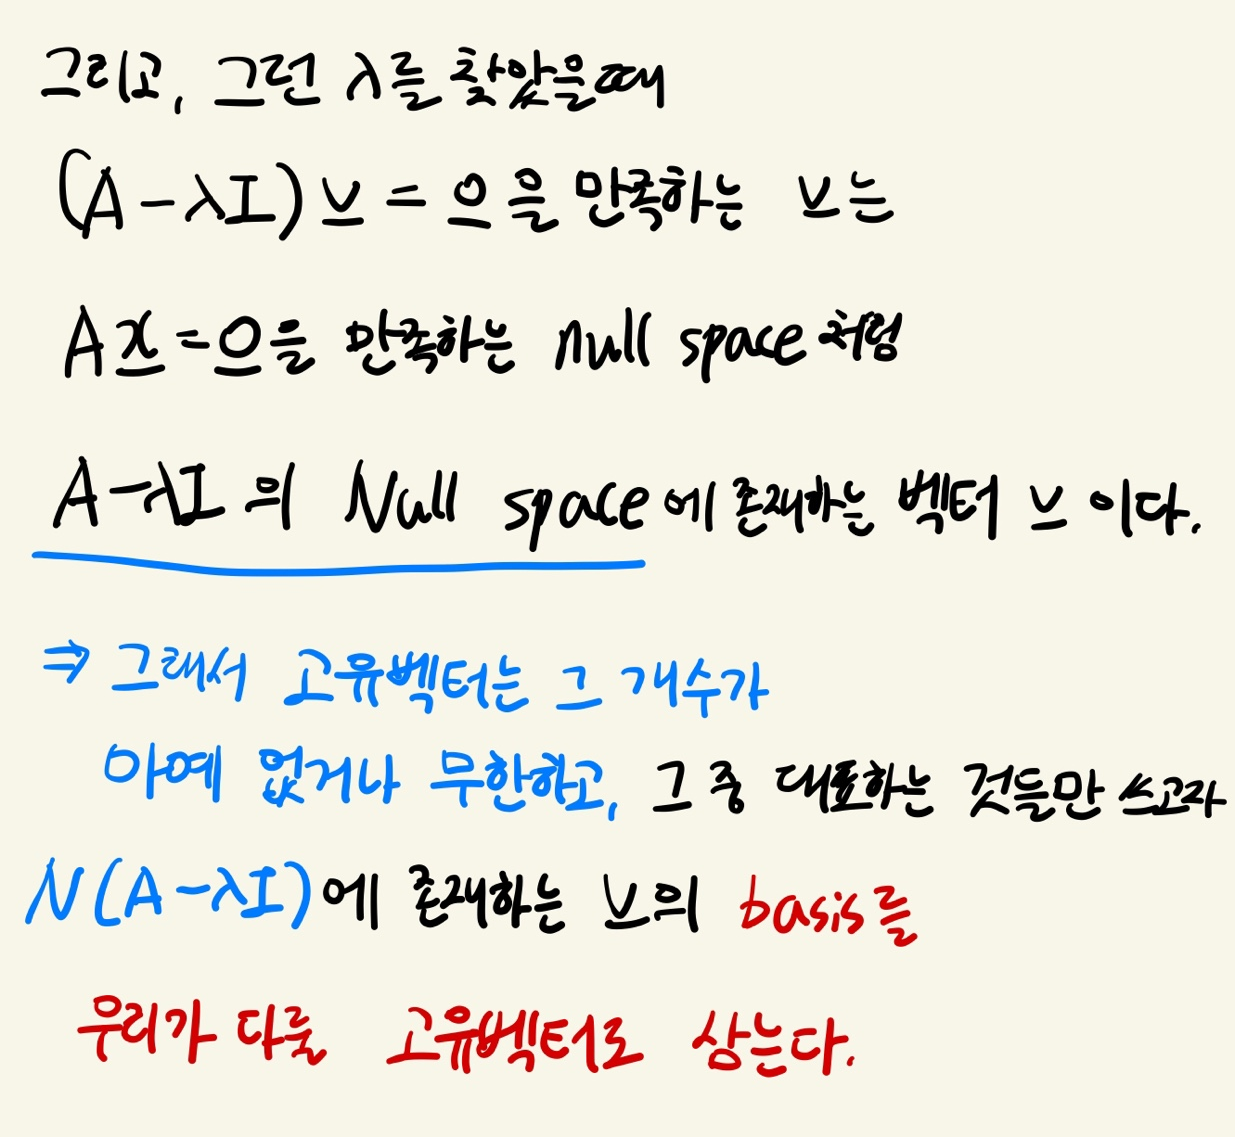 그리고, 그런 λ를 찾았을때
(A-λI)v = 0을 만족하는 v는
Ax=0을 만족하는 null space처럼
A-λI의 Null space에 존재하는 벡터 v이다.
⇒ 그래서 고유벡터는 그 개수가
아예 없거나 무한하고, 그 중 대표하는 것들만 쓰고자
N(A-λI)에 존재하는 v의 basis를
우리가 다룰 고유벡터로 삼는다.